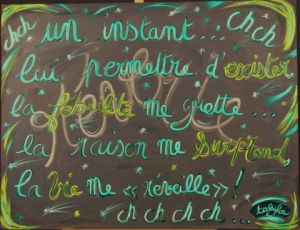 chch un instant... chch
lui permettre d'exister
la fébrilité me guette...
la raison me surprend,
la Vie me « réveille » !
ch ch ch ch...